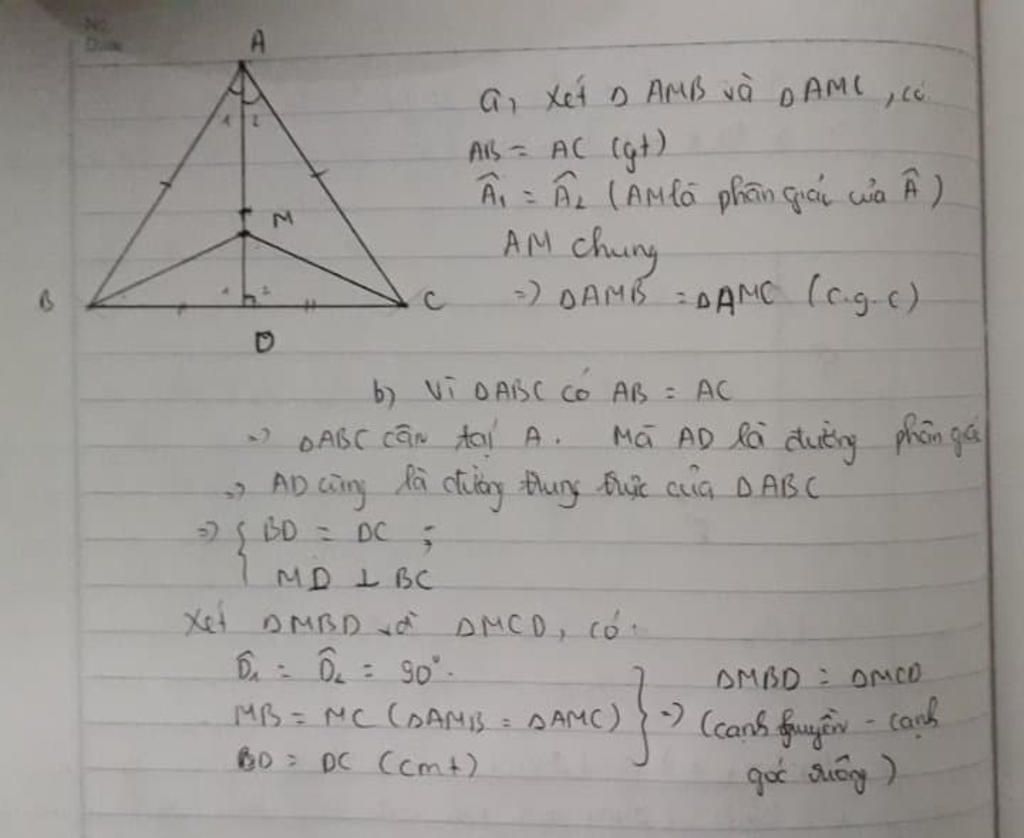 No.
Date
A
1 2
M
B
C
1 2
D
a, Xét Δ AMB và Δ AMC, có
AB = AC (gt)
Â₁ = Â₂ (AM là phân giác của Â)
AM chung
=> ΔAMB = ΔAMC (c.g.c)
b) Vì ΔABC có AB = AC
=> ΔABC cân tại A. Mà AD là đường phân giác
=> AD cũng là đường trung trực của ΔABC
=> { BD = DC ;
MD ⊥ BC
Xét ΔMBD và ΔMCD, có.
D̂₁ = D̂₂ = 90°.
MB = MC (ΔAMB = ΔAMC)
BD = DC (cmt)
} => ΔMBD = ΔMCD
(cạnh huyền - cạnh
góc vuông)